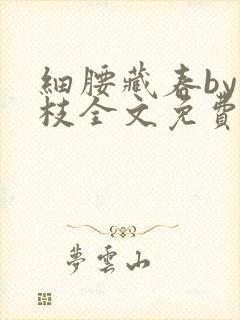 細腰藏春by
枝全文免費
夢雲山